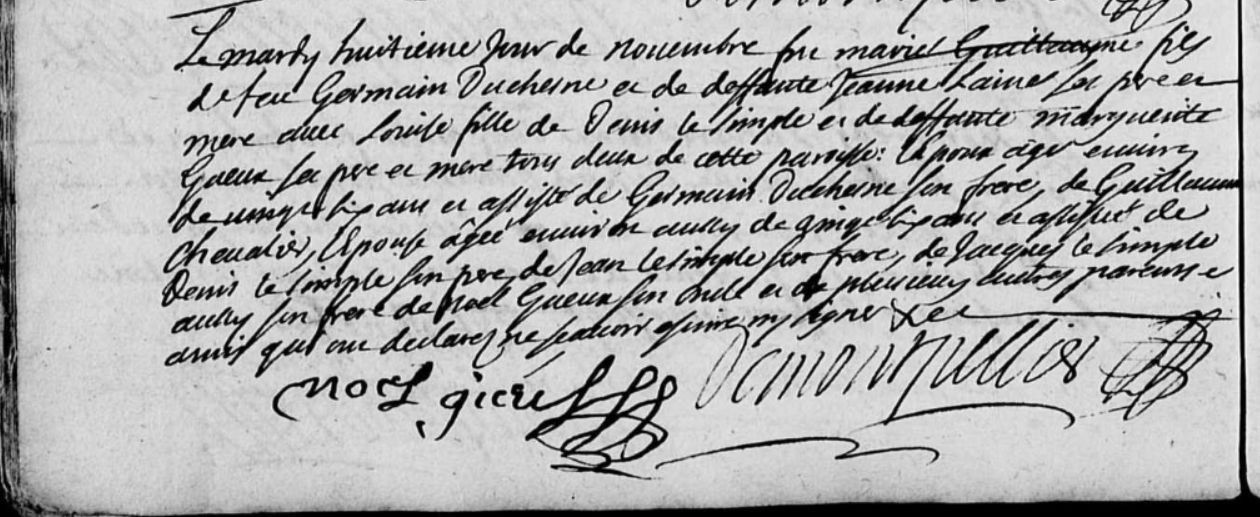 Le mardy huitieme Jour de novembre fut marié Guillaume fils
de feu Germain Duchesne et de deffunte Jeanne Laine ses pere et
mere avec Louise fille de Denis le simple et de deffunte marguerite
Gueux ses pere et mere tous deux de cette paroisse: L'epoux agé environ
de vingt six ans et assisté de Germain Duchesne son frere, de Guillaume
Chevalier, L'epouse agée environ aussy de vingt six ans et assistée de
Denis le simple son pere, de Jean le simple son frere, de Jacques le simple
aussy son frere de Noel Gueux son oncle et de plusieurs autres parens et
amis qui ont declarez ne scavoir escrire ny signer
noel